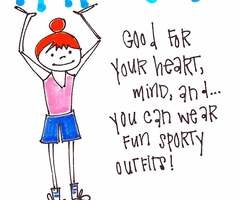 GOOD FOR
YOUR HEART,
MIND, AND...
YOU CAN WEAR
FUN SPORTY
OUTFITS!